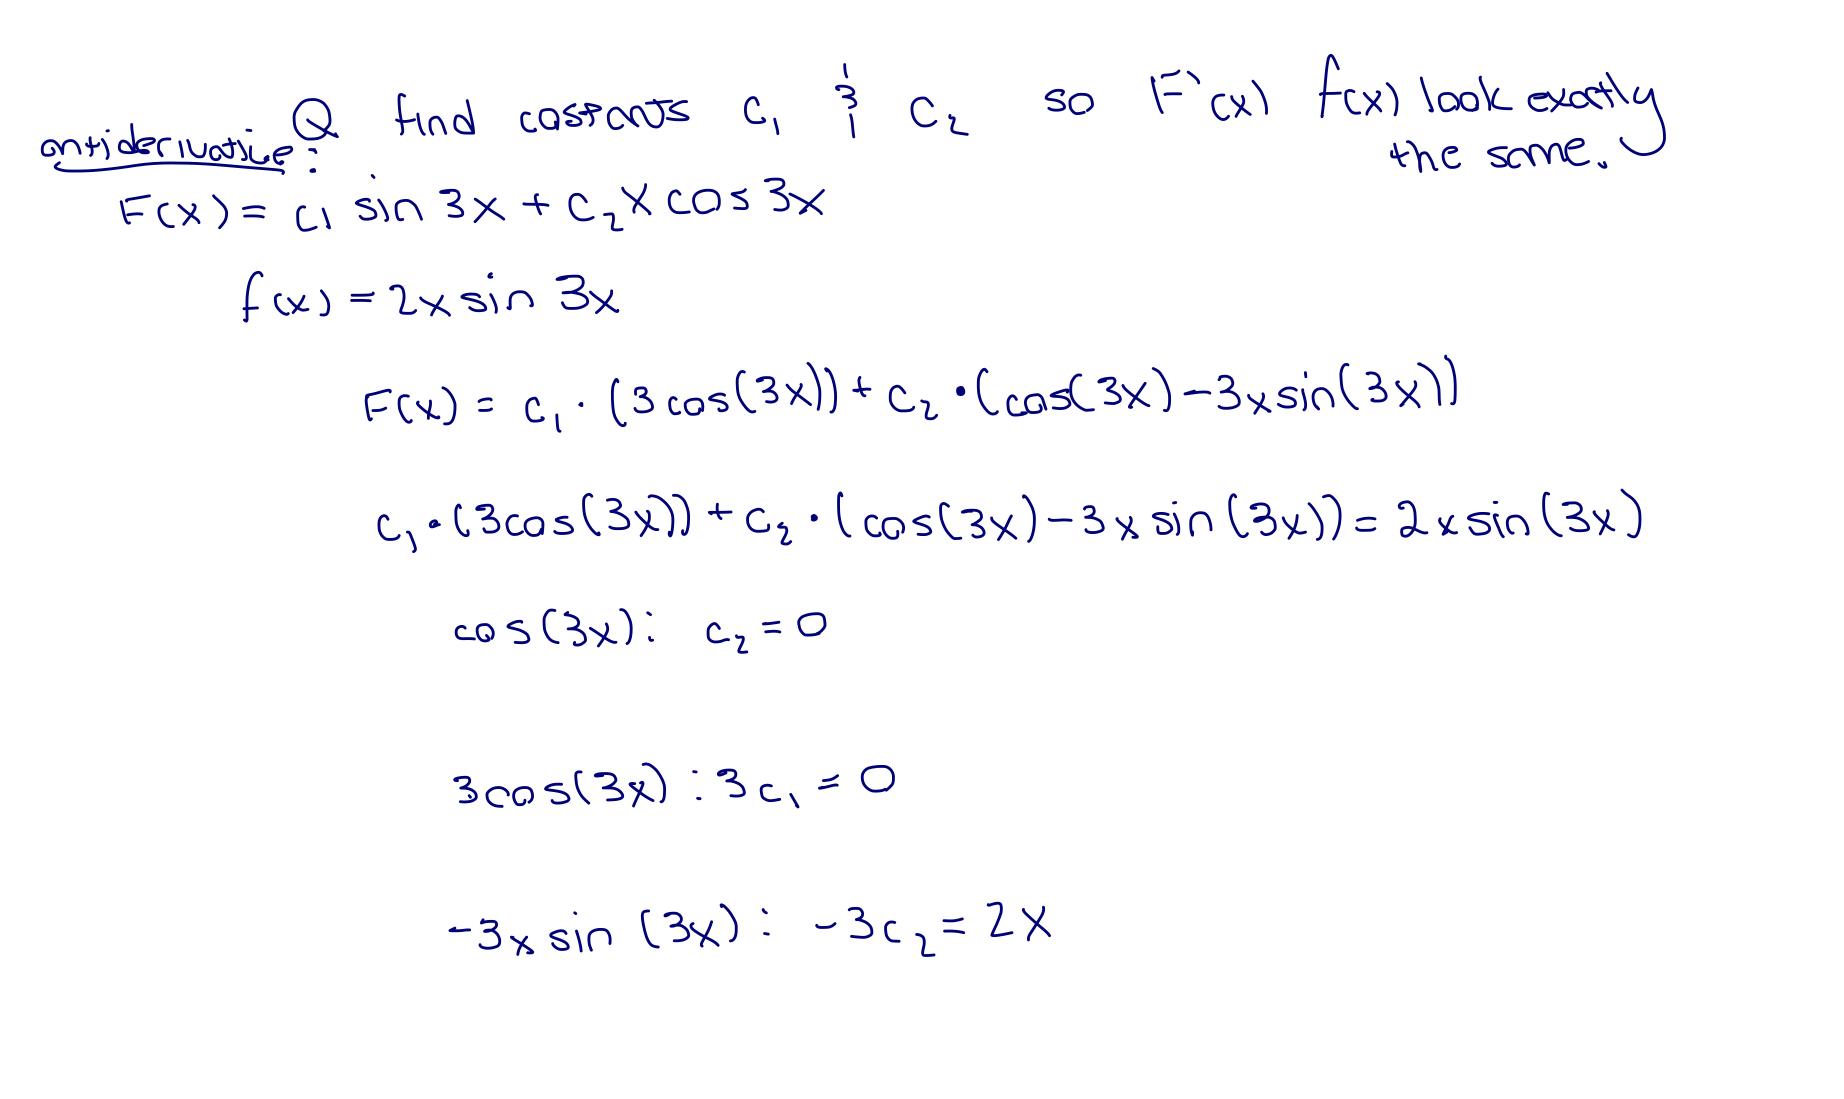 Q find costants c₁ & c₂ so F'(x) f(x) look exactly
the same.
antiderivative:
F(x) = c₁ sin 3x + c₂ x cos 3x
f(x) = 2x sin 3x
F(x) = c₁ · (3 cos(3x)) + c₂ · (cos(3x) - 3x sin(3x))
c₁ · (3cos(3x)) + c₂ · (cos(3x) - 3x sin(3x)) = 2x sin(3x)
cos(3x): c₂ = 0
3cos(3x) : 3c₁ = 0
-3x sin (3x) : -3c₂ = 2x